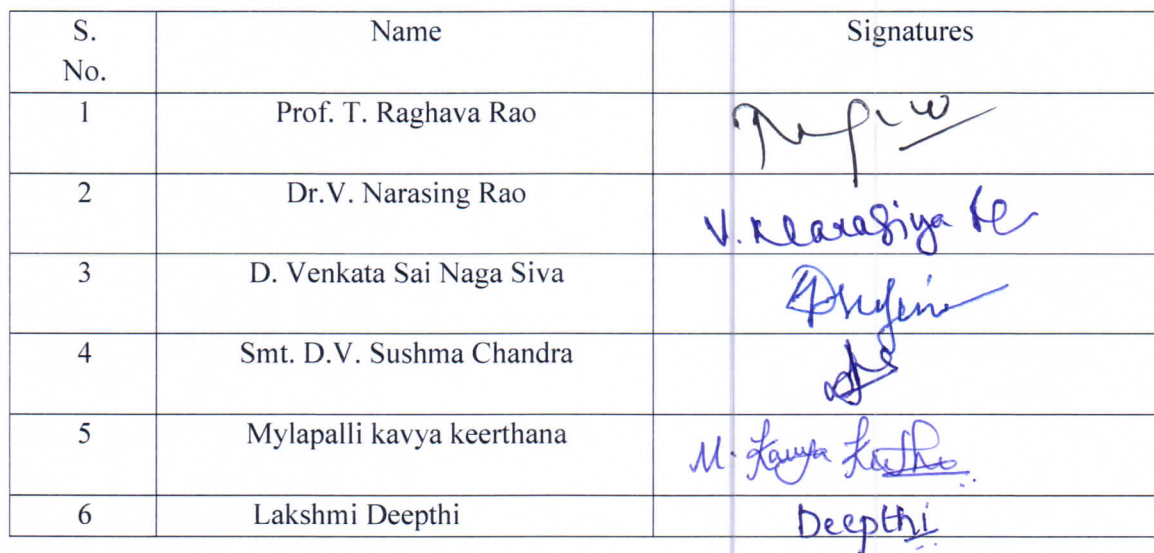 S. No. Name Signatures
1 Prof. T. Raghava Rao
2 Dr.V. Narasing Rao V.
3 D. Venkata Sai Naga Siva
4 Smt. D.V. Sushma Chandra
5 Mylapalli kavya keerthana M. Kavya
6 Lakshmi Deepthi Deepthi